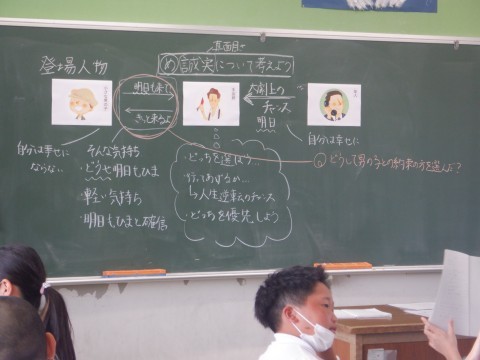 真面目さ
め 誠実について考えよう
登場人物
明日も来て
きっと来るよ
大劇場の
チャンス
明日
自分は幸せに
ならない
そんな気持ち
・どうせ明日もひま
・軽い気持ち
・明日もひまと確信
・どっちを選ぼう…
・行ってあげるか…
↳人生逆転のチャンス
・どっちを優先しよう
自分は幸せに
どうして男の子との約束の方を選んだ?